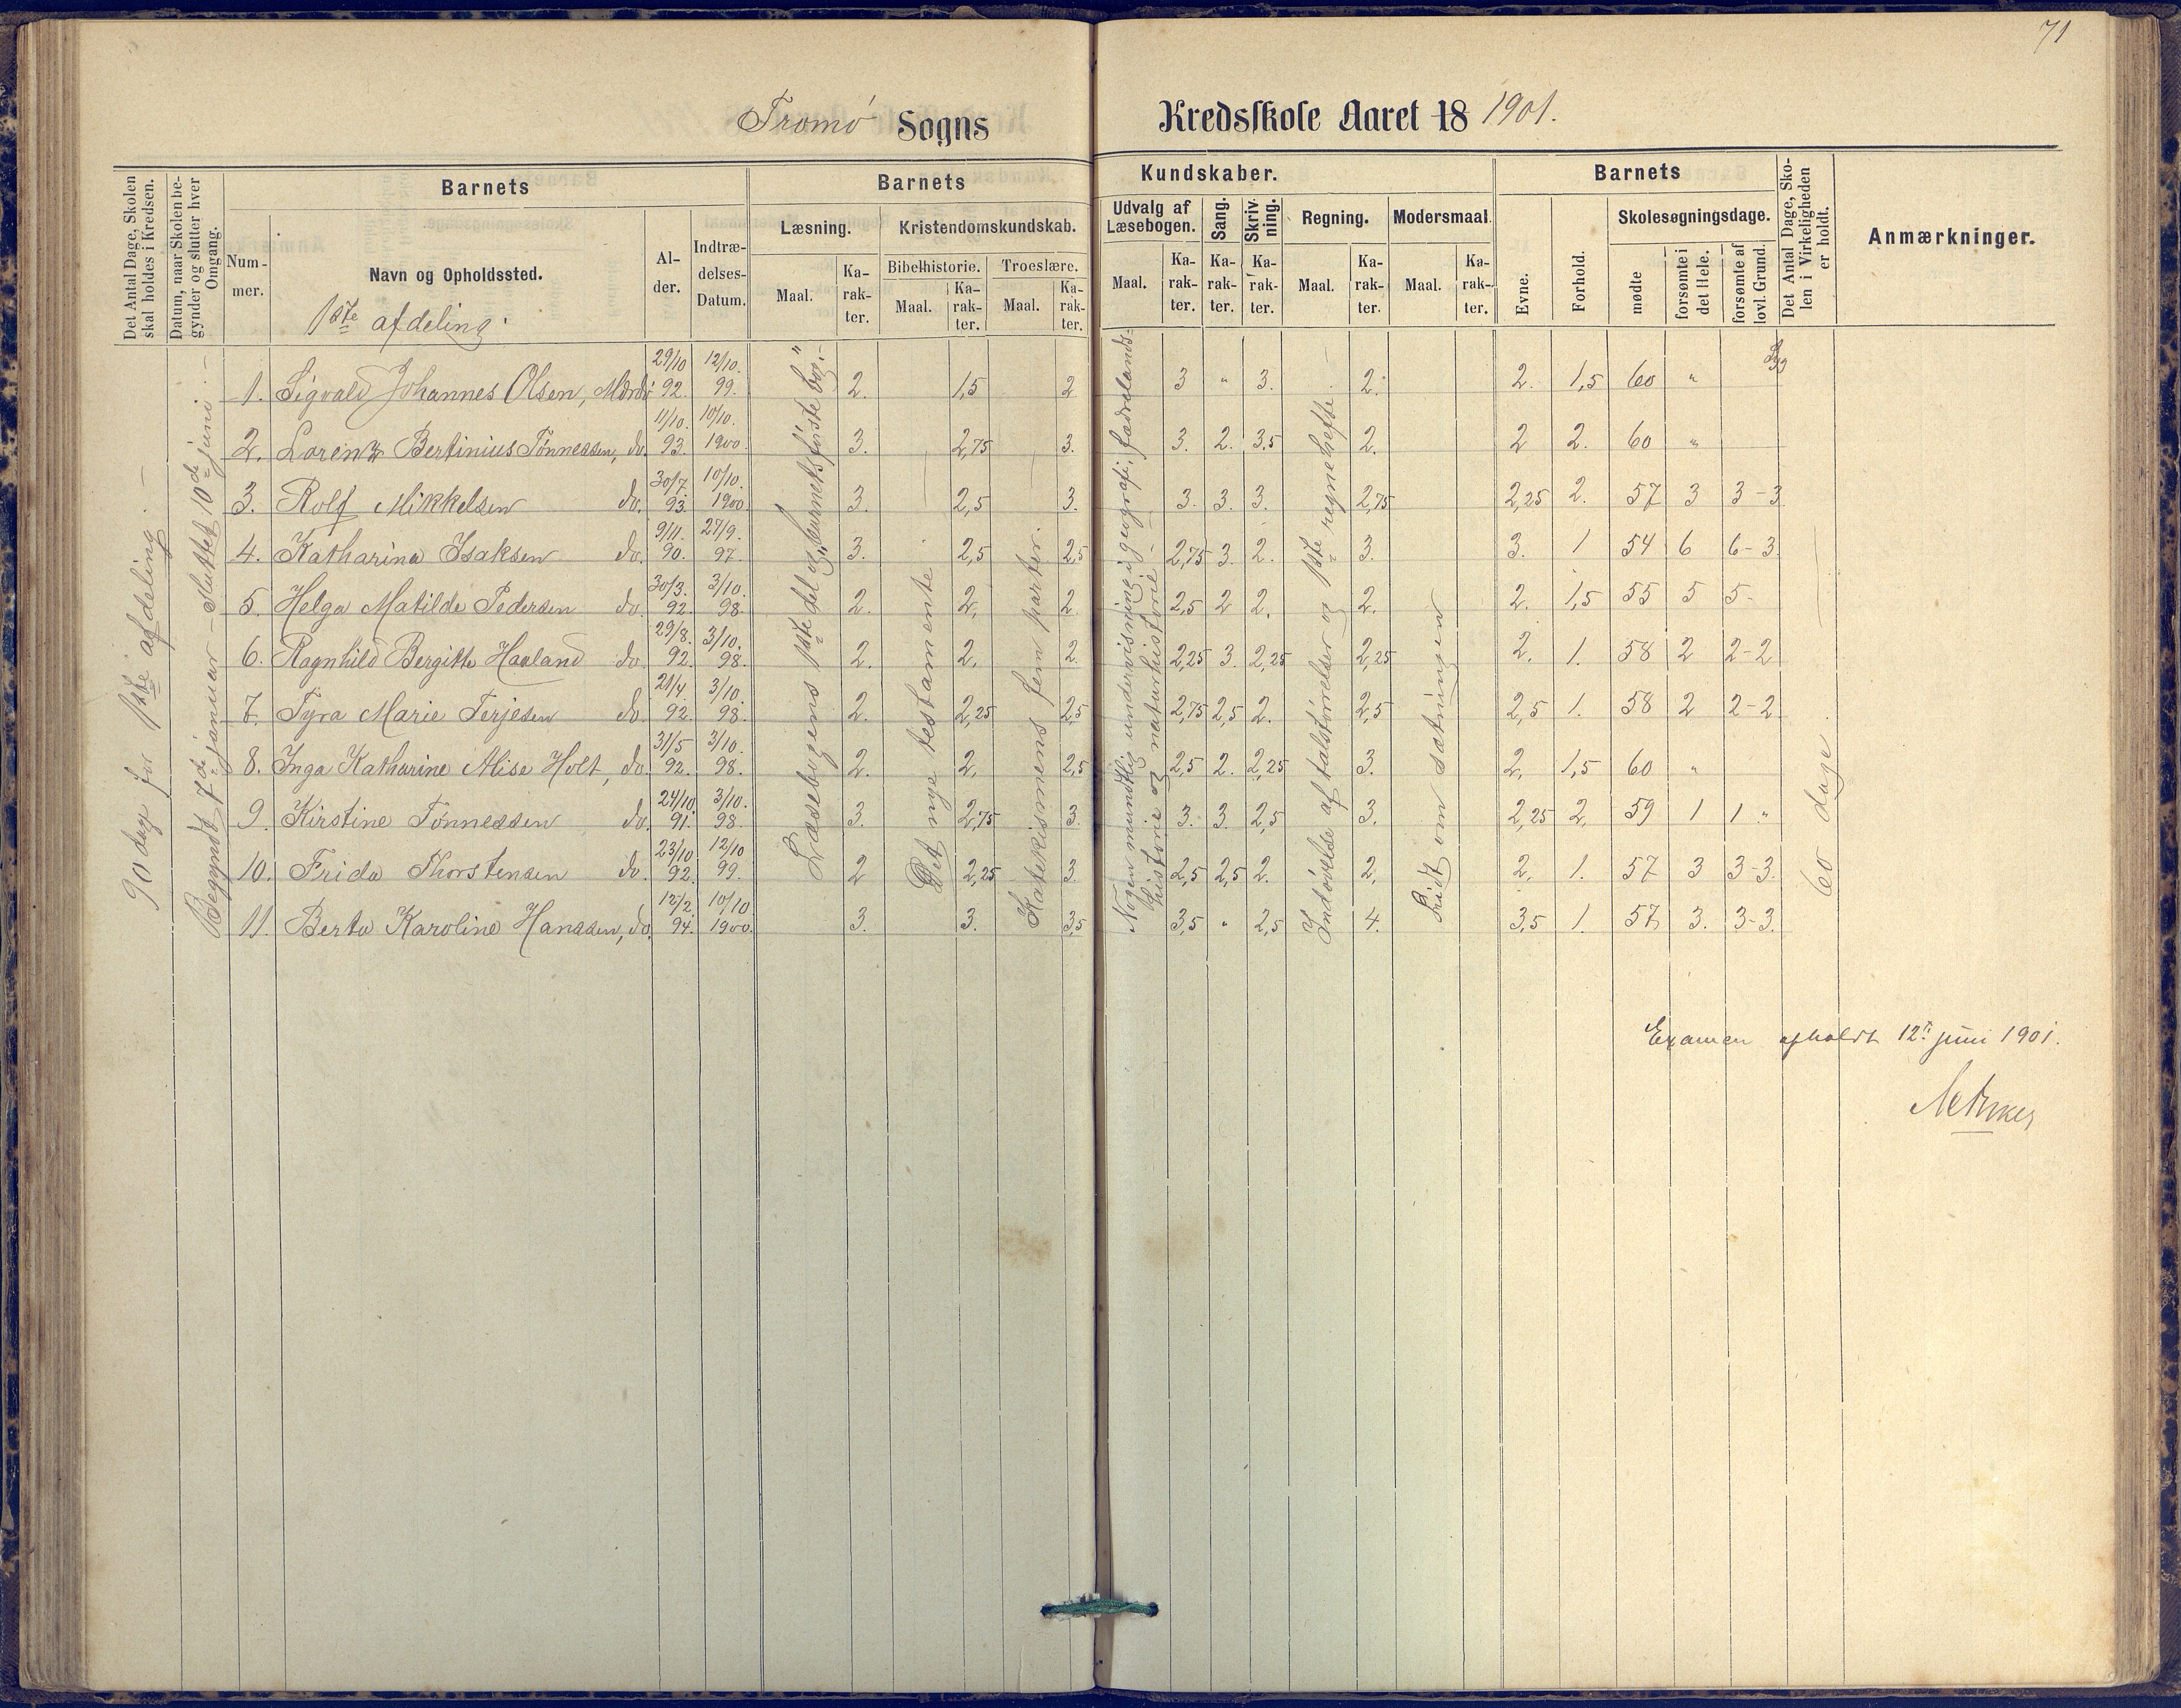 71
Tromø Sogns Kredsskole Aaret 18 1901.
Det Antal Dage, Skolen skal holdes i Kredsen.
Datum, naar Skolen begynder og slutter hver Omgang.
Barnets
Barnets Kundskaber.
Barnets
Det Antal Dage, Skolen i Virkeligheden er holdt.
Anmærkninger.
Nummer.
Navn og Opholdssted.
Alder.
Indtrædelses-Datum.
Læsning.
Kristendomskundskab.
Udvalg af Læsebogen.
Sang.
Skrivning.
Regning.
Modersmaal.
Evne.
Forhold.
Skolesøgningsdage.
Bibelhistorie.
Troeslære.
Maal. Karakter. Maal. Karakter. Maal. Karakter. Maal. Karakter. Karakter. Karakter. Maal. Karakter. Maal. Karakter.
mødte
forsømte i det Hele.
forsømte af lovl. Grund.
1ste afdeling.
90 dage for 1ste afdeling. —
Begyndt 7de januar – sluttet 10de juni. —
Læsebogens 1ste del og „barnets første bog".-
Det nye testamente
Katekismens fem parter
Nogen mundtlig undervisning i geografi, fædrelands-
historie og naturhistorie.
Indøvelse af talstørrelser og 1ste regnehefte
Lidt om sætningen
60 dage
Syg
1. Sigvald Johannes Olsen, Mærdø 29/10 92. 12/10. 99. 2. 1,5 2 3 " 3. 2. 2. 1,5 60 "
2. Lorentz Bertinius Tønnessen, do. 11/10. 93. 10/10. 1900. 3. 2,75 3. 3. 2. 3,5 2. 2 2. 60 "
3. Rolf Mikkelsen do. 30/7. 93. 10/10. 1900 3. 2,5 3. 3. 3. 3. 2,75 2,25 2. 57 3 3-3
4. Katharina Isaksen do. 9/11. 90. 27/9. 97. 3. 2,5 2,5 2,75 3. 2. 3. 3. 1 54 6 6-3.
5. Helga Matilde Pedersen do. 30/3. 92. 3/10. 98. 2. 2. 2. 2,5 2 2. 2. 2. 1,5 55 5 5-
6. Ragnhild Bergitte Haaland do. 29/8. 92. 3/10. 98. 2. 2. 2. 2,25 3. 2,25 2,25 2. 1. 58 2 2-2
7. Tyra Marie Terjesen do. 21/4 92. 3/10. 98. 2. 2,25 2,5 2,75 2,5 2. 2,5 2,5 1. 58 2 2-2
8. Inga Katharine Alise Holt, do. 31/5 92. 3/10. 98. 2. 2. 2,5 2,5 2. 2,25 3. 2. 1,5 60 "
9. Kirstine Tønnessen do. 24/10 91. 3/10. 98. 3. 2,75 3. 3. 3. 2,5 3. 2,25 2. 59 1 1 "
10. Frida Thorstensen do. 23/10 92. 12/10 99. 2 2,25 3. 2,5 2,5 2. 2. 2. 1. 57 3 3-3.
11. Berta Karoline Hanssen, do. 12/2. 94. 10/10 1900. 3. 3. 3,5 3,5 " 2,5 4. 3,5 1. 57 3. 3-3.
Examen afholdt 12te juni 1901.